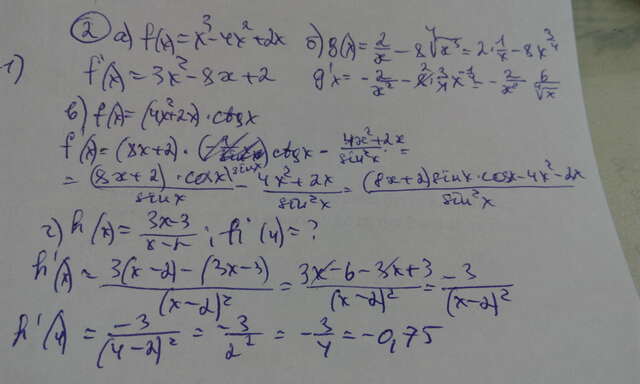 ② а) f(x)=x³-4x²+2x б) g(x)=2/x-8⁴√x³=2·1/x-8x^(3/4)
1) f'(x)=3x²-8x+2 g'x=-2/x²-8·3/4x^(-1/4)=-2/x²-6/⁴√x
в) f(x)=(4x²+2x)·ctgx
f'(x)=(8x+2)·ctgx-(4x²+2x)/sin²x=
=(8x+2)·cosx/sinx-(4x²+2x)/sin²x=((8x+2)sinx·cosx-4x²-2x)/sin²x
г) h(x)=(3x-3)/; h'(4)=?
h'(x)=(3(x-2)-(3x-3))/(x-2)²=(3x-6-3x+3)/(x-2)²=-3/(x-2)²
h'(4)=-3/(4-2)²=-3/2²=-3/4=-0,75